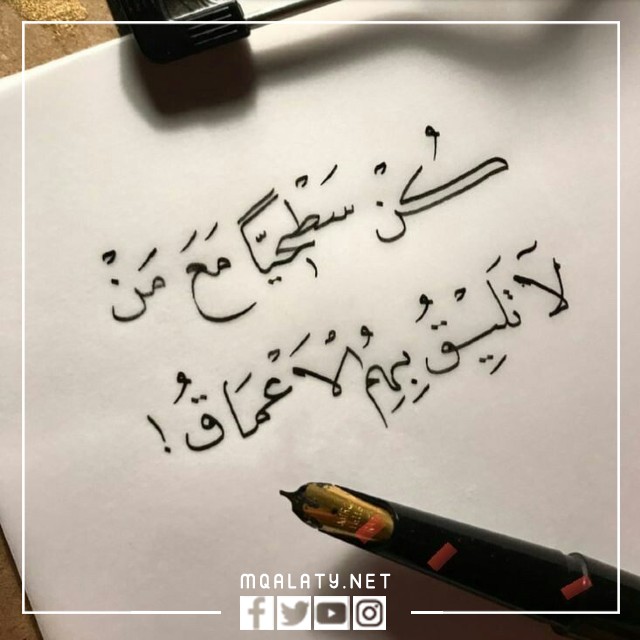 كُنْ سَطْحِيًّا مَعَ مَنْ
لَا تَلِيْقُ بِهِمُ الْأَعْمَاقُ !
MQALATY.NET